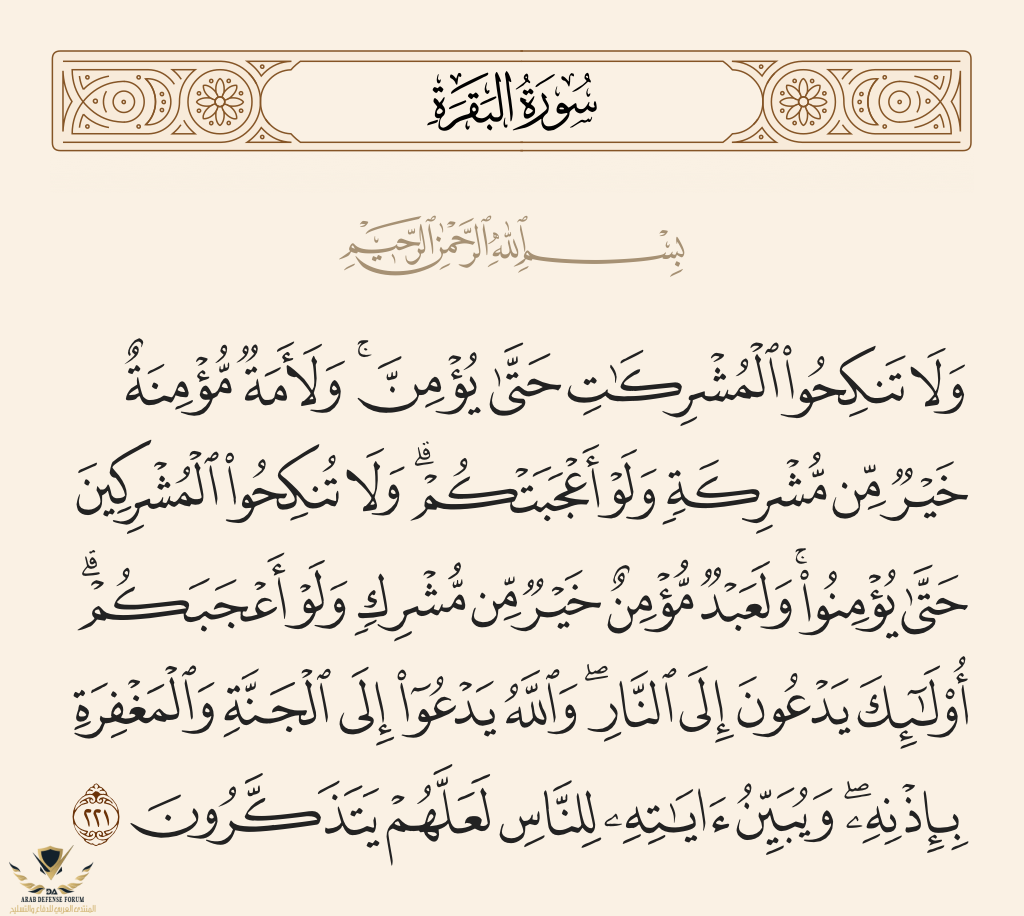 سُورَةُ البَقَرَةِ
بِسْمِ ٱللَّهِ ٱلرَّحْمَٰنِ ٱلرَّحِيمِ
وَلَا تَنكِحُوا۟ ٱلْمُشْرِكَٰتِ حَتَّىٰ يُؤْمِنَّ ۚ وَلَأَمَةٌ مُّؤْمِنَةٌ
خَيْرٌ مِّن مُّشْرِكَةٍ وَلَوْ أَعْجَبَتْكُمْ ۗ وَلَا تُنكِحُوا۟ ٱلْمُشْرِكِينَ
حَتَّىٰ يُؤْمِنُوا۟ ۚ وَلَعَبْدٌ مُّؤْمِنٌ خَيْرٌ مِّن مُّشْرِكٍ وَلَوْ أَعْجَبَكُمْ ۗ
أُو۟لَٰٓئِكَ يَدْعُونَ إِلَى ٱلنَّارِ ۖ وَٱللَّهُ يَدْعُوٓا۟ إِلَى ٱلْجَنَّةِ وَٱلْمَغْفِرَةِ
بِإِذْنِهِۦ ۖ وَيُبَيِّنُ ءَايَٰتِهِۦ لِلنَّاسِ لَعَلَّهُمْ يَتَذَكَّرُونَ ٢٢١
DA
ARAB DEFENSE FORUM
المنتدى العربي للدفاع والتسليح